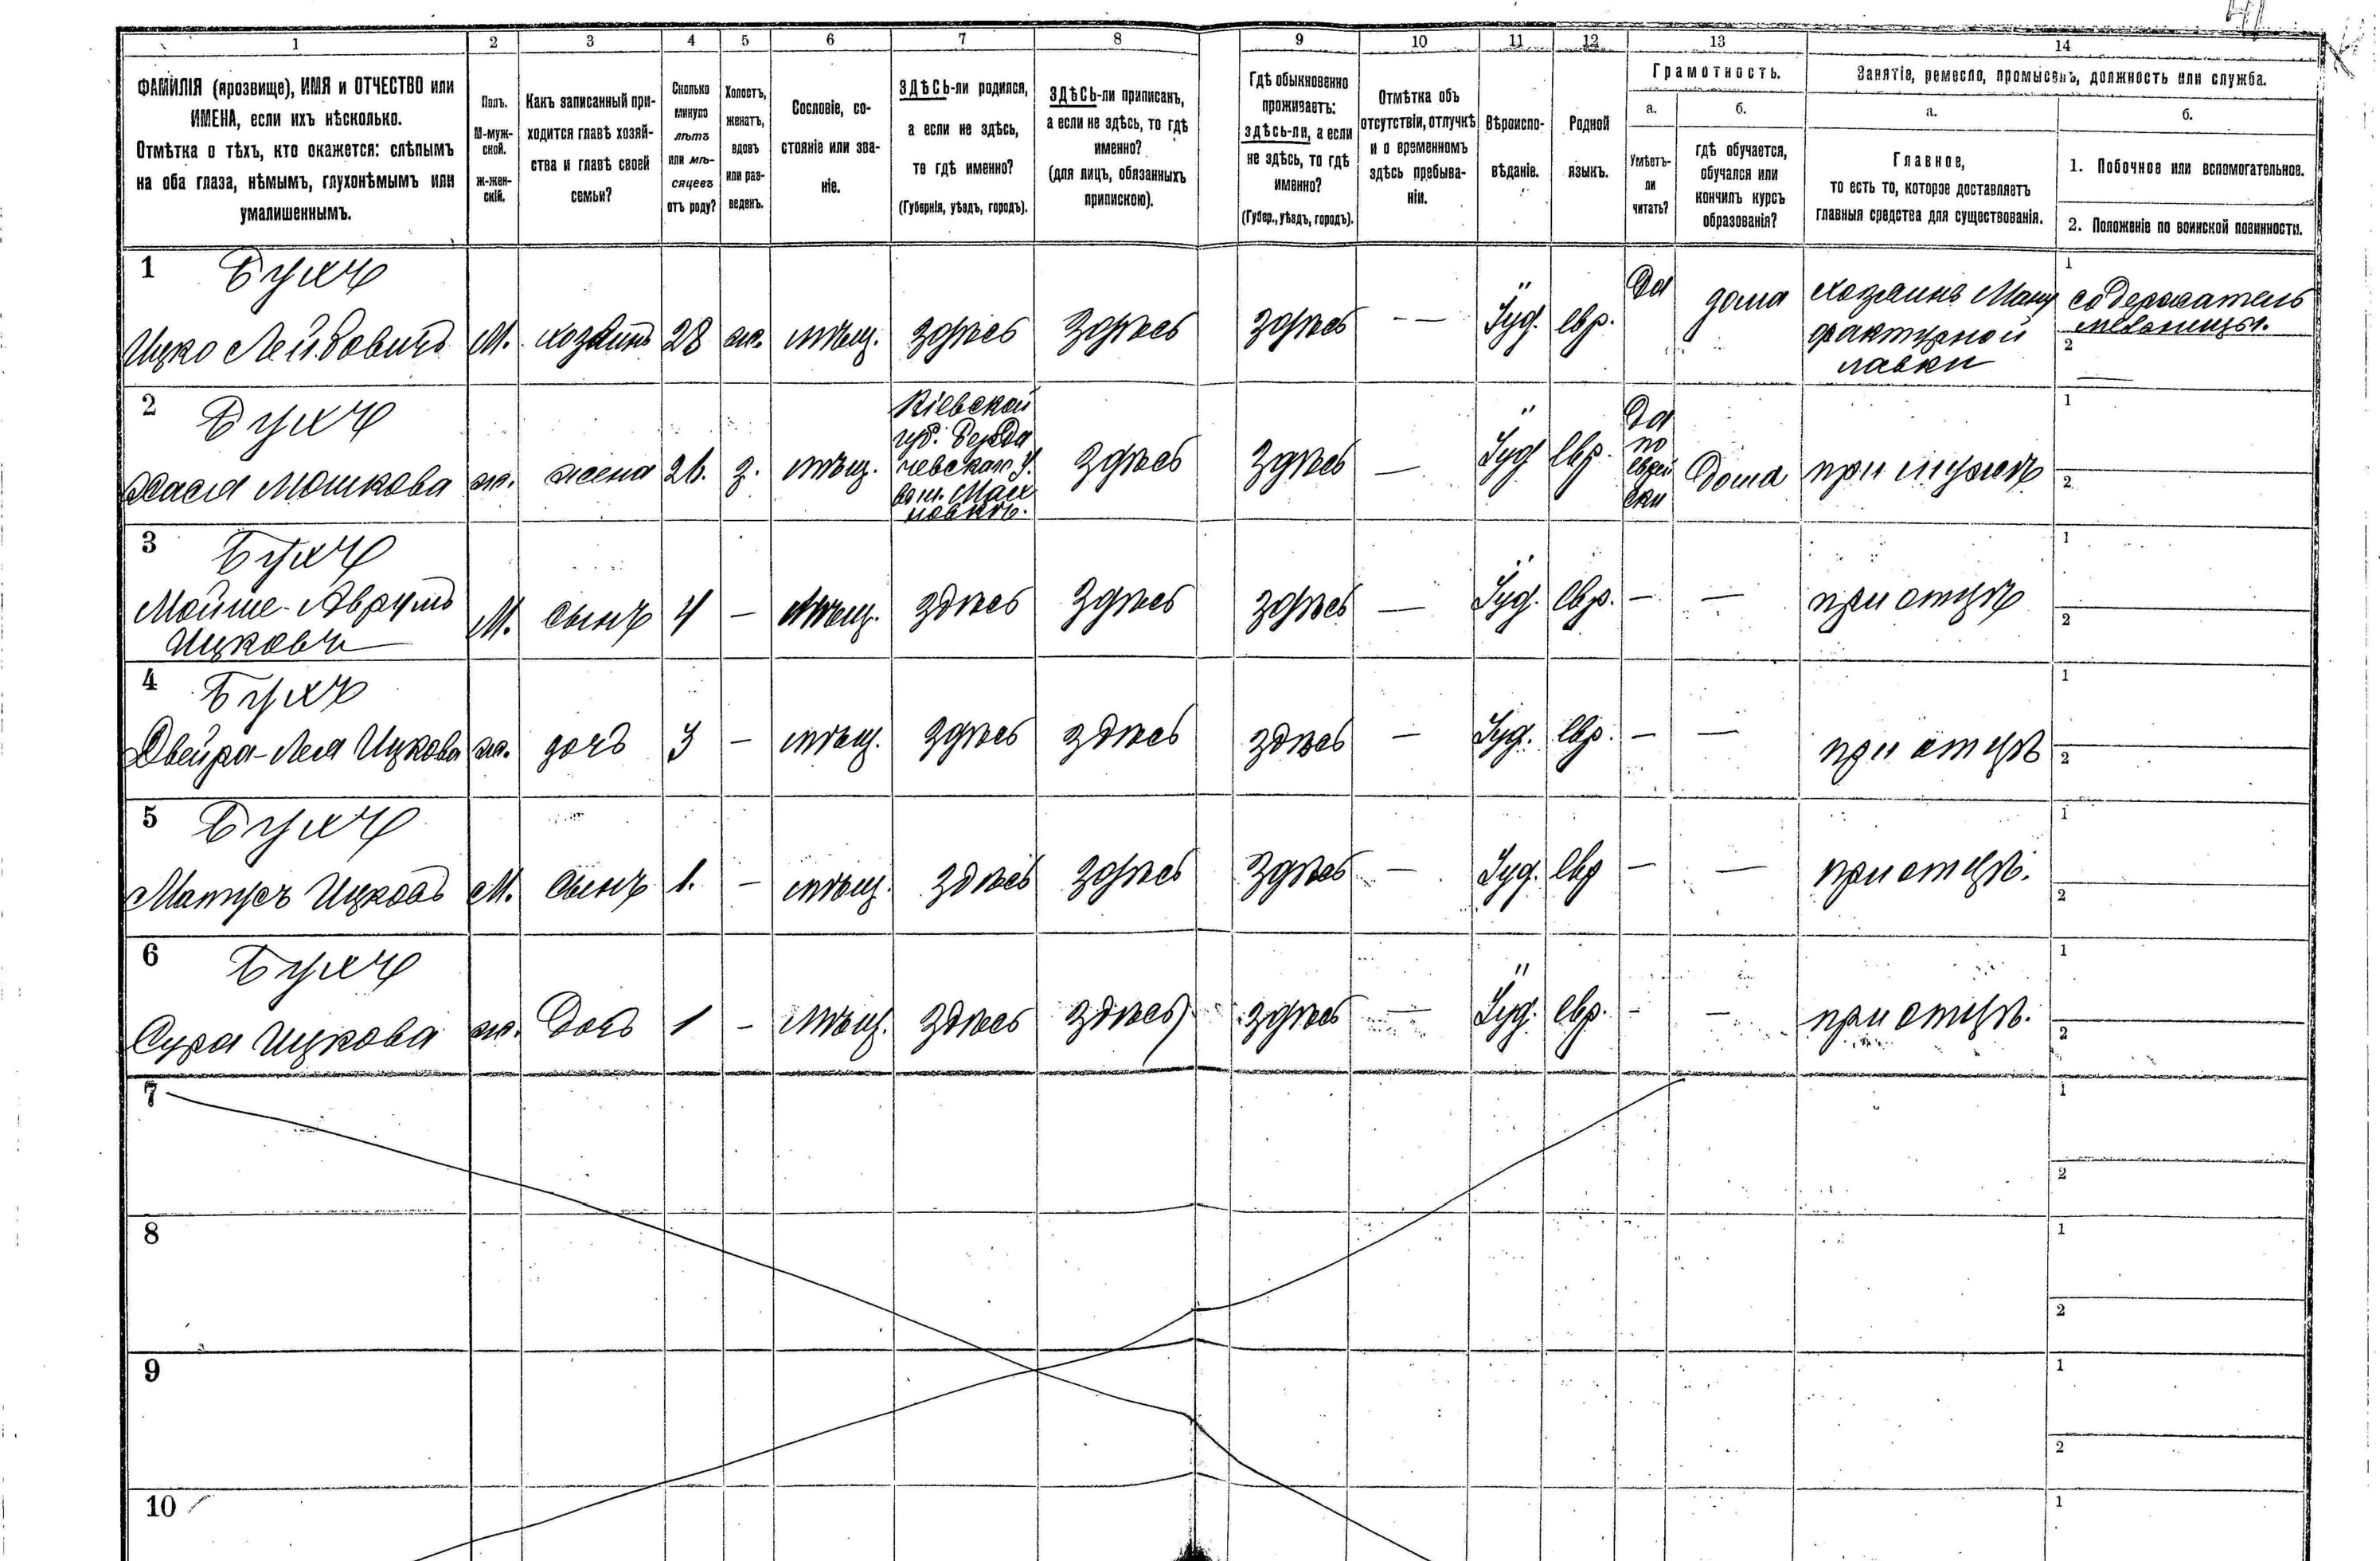 41
1 2 3 4 5 6 7 8 9 10 11 12 13 14
ФАМИЛІЯ (прозвище), ИМЯ и ОТЧЕСТВО или
ИМЕНА, если ихъ нѣсколько.
Отмѣтка о тѣхъ, кто окажется: слѣпымъ
на оба глаза, нѣмымъ, глухонѣмымъ или
умалишеннымъ.
Полъ.
М-муж-
ской.
Ж-жен-
скій.
Какъ записанный при-
ходится главѣ хозяй-
ства и главѣ своей
семьи?
Сколько
минуло
лѣтъ
или мѣ-
сяцевъ
отъ роду?
Холостъ,
женатъ,
вдовъ
или раз-
веденъ.
Сословіе, со-
стояніе или зва-
ніе.
ЗДѢСЬ-ли родился,
а если не здѣсь,
то гдѣ именно?
(Губернія, уѣздъ, городъ).
ЗДѢСЬ-ли приписанъ,
а если не здѣсь, то гдѣ
именно?
(для лицъ, обязанныхъ
припискою).
Гдѣ обыкновенно
проживаетъ:
здѣсь-ли, а если
не здѣсь, то гдѣ
именно?
(Губер., уѣздъ, городъ).
Отмѣтка объ
отсутствіи, отлучкѣ
и о временномъ
здѣсь пребыва-
ніи.
Вѣроиспо-
вѣданіе.
Родной
языкъ.
Грамотность.
а.
Умѣетъ-
ли
читать?
б.
гдѣ обучается,
обучался или
кончилъ курсъ
образованія?
Занятіе, ремесло, промыселъ, должность или служба.
а.
Главное,
то есть то, которое доставляетъ
главныя средства для существованія.
б.
1. Побочное или вспомогательное.
2. Положеніе по воинской повинности.
1 Бухъ
Ицко Лейбовичъ М. хозяинъ 28 ж. мѣщ. здѣсь здѣсь здѣсь — Іуд. евр. Да дома
хозяинъ Ману
фактурной
лавки
1 содержатель
мельницы.
2 —
2 Бухъ
Хася Мошкова ж. жена 26. з. мѣщ.
Кіевской
губ. Берди
чевскаго У.
Мах
новкѣ.
здѣсь здѣсь — Іуд евр.
Да
по
еврей
ски
Дома при мужѣ
1
2
3 Бухъ
Мойше-Аврумъ
Ицковъ М. сынъ 4 — мѣщ. здѣсь здѣсь здѣсь — Іуд. Евр. — — при отцѣ
1
2
4 Бухъ
Двейра-Лея Ицкова ж. дочь 3 — мѣщ. здѣсь здѣсь здѣсь — Іуд. евр. — — при отцѣ
1
2
5 Бухъ
Матусъ Ицковъ М. сынъ 1. — мѣщ. здѣсь здѣсь здѣсь — Іуд. евр — — при отцѣ.
1
2
6 Бухъ
Сура Ицкова ж. Дочь 1 — мѣщ. здѣсь здѣсь здѣсь — Іуд. евр. — — при отцѣ.
1
2
7
1
2
8
1
2
9
1
2
10
1